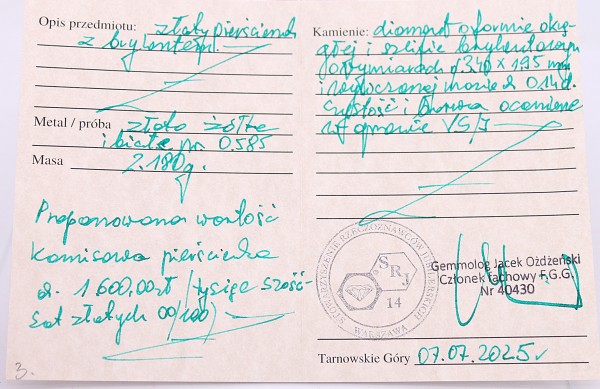 Opis przedmiotu: złoty pierścionek
z brylantem.
Metal / próba złoto żółte
i białe pr. 0.585
Masa 2.180g.
Proponowana wartość
komisowa pierścionka
1 600,00 zł /tysiąc sześć-
set złotych 00/100/
3.
Kamienie: diament o formie okrą-
głej i szlifie brylantowym
o wymiarach 3.40 x 1.95 mm
i wyliczonej masie 0.14
czystość i barwa ocenione
w oprawie VS/J
STOWARZYSZENIE RZECZOZNAWCÓW JUBILERSKICH
WARSZAWA
SRJ
14
Gemmolog Jacek Ożdżeński
Członek fachowy F.G.G.
Nr 40430
Tarnowskie Góry 07.07.2025 r